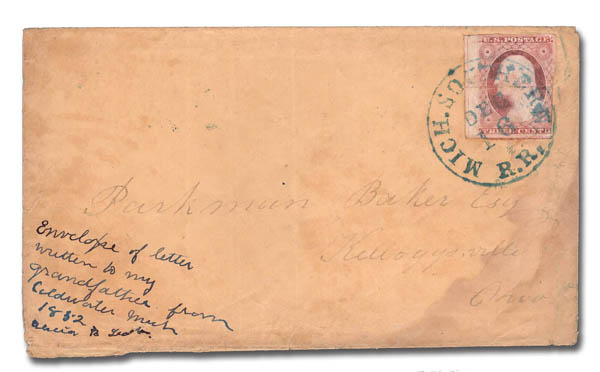 U.S. POSTAGE.
THREE CENTS
MICH. SOUTHERN R.R.
DEC
16
Parkman Baker Esq
Kelloggsville
Ohio
Envelope of letter
written to my
grandfather from
Coldwater Mich
1852